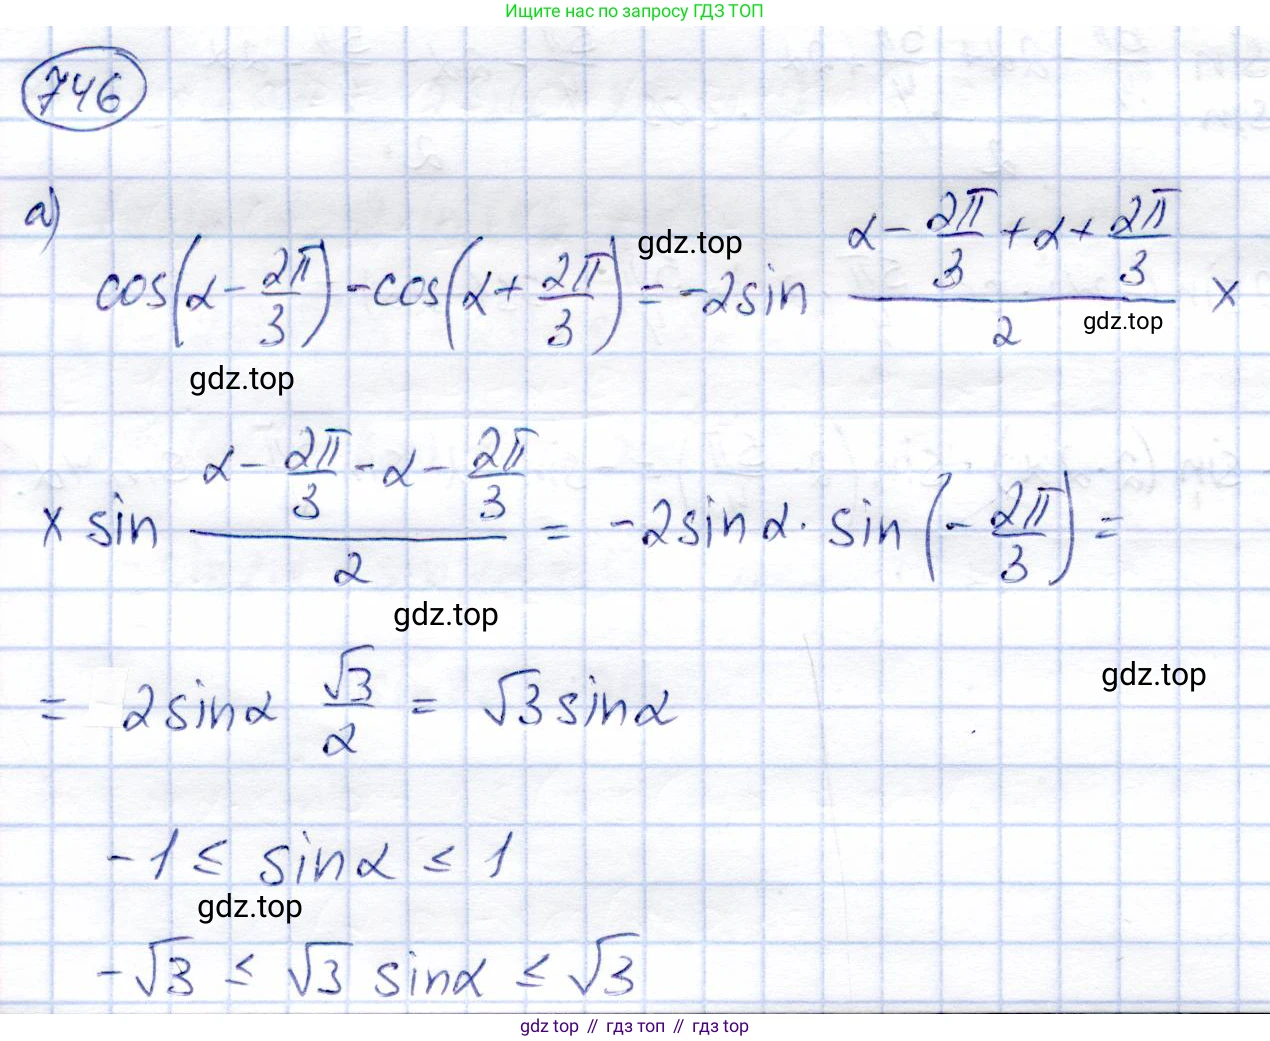 Ищите нас по запросу ГДЗ ТОП
746
а)
cos(α − 2π/3) − cos(α + 2π/3) = −2sin (α − 2π/3 + α + 2π/3)/2 ×
gdz.top
gdz.top
gdz.top
× sin (α − 2π/3 − α − 2π/3)/2 = −2sin α · sin(−2π/3) =
gdz.top
= 2sinα √3/2 = √3 sinα
gdz.top
−1 ≤ sinα ≤ 1
gdz.top
−√3 ≤ √3 sinα ≤ √3
gdz top // гдз топ // гдз top